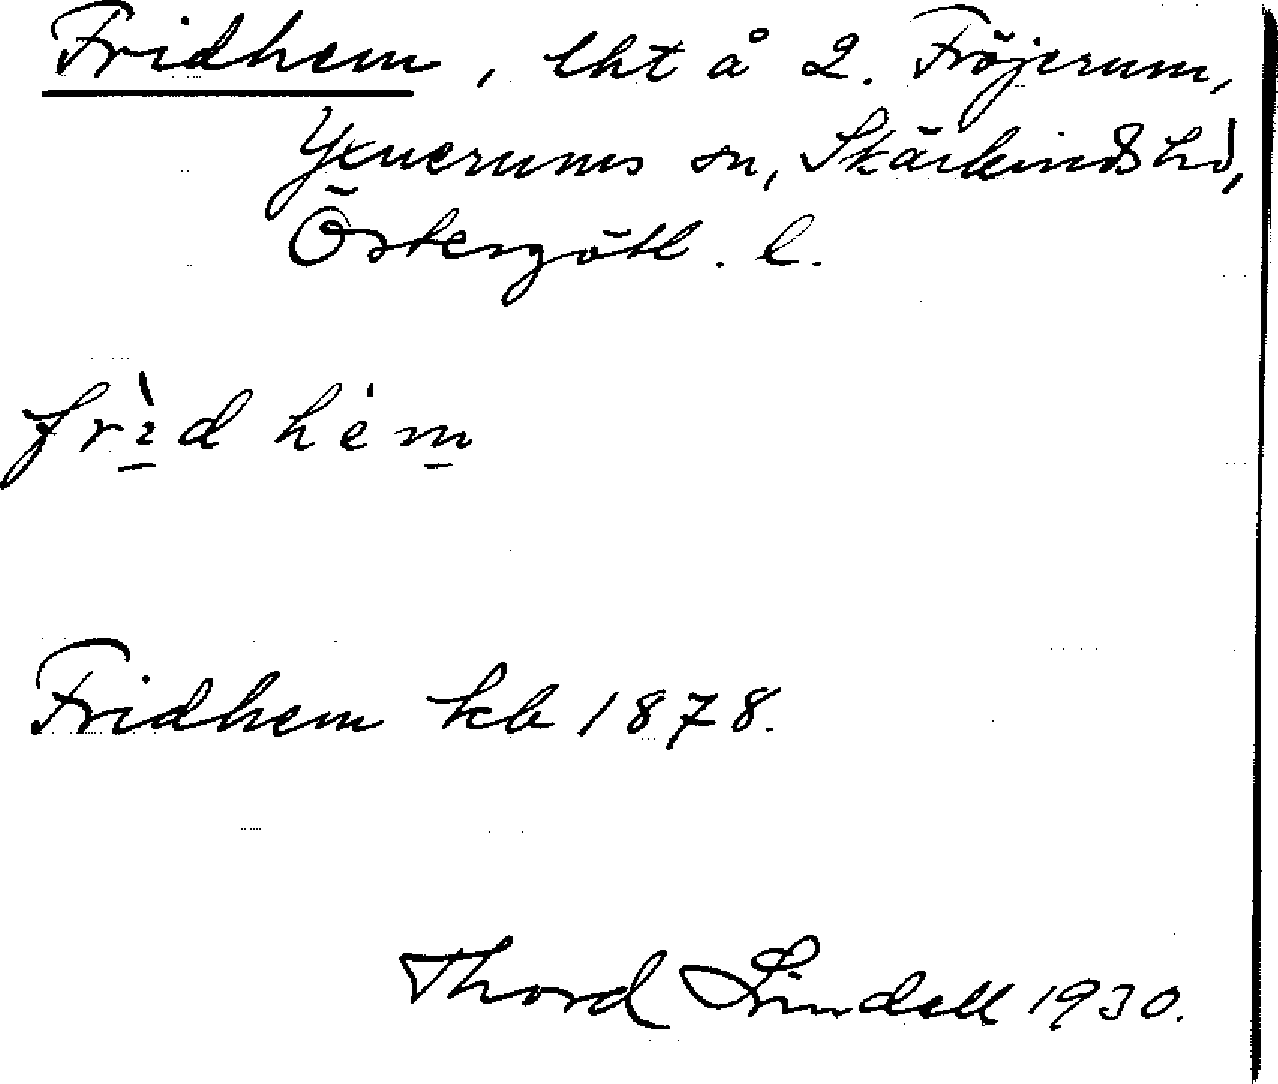 Fridhem, lht å 2. Fröjerum,
Yxnerums sn, Skärkinds hd,
Östergötl. l.
frìd hém
Fridhem kb 1878.
Thord Lindell 1930.